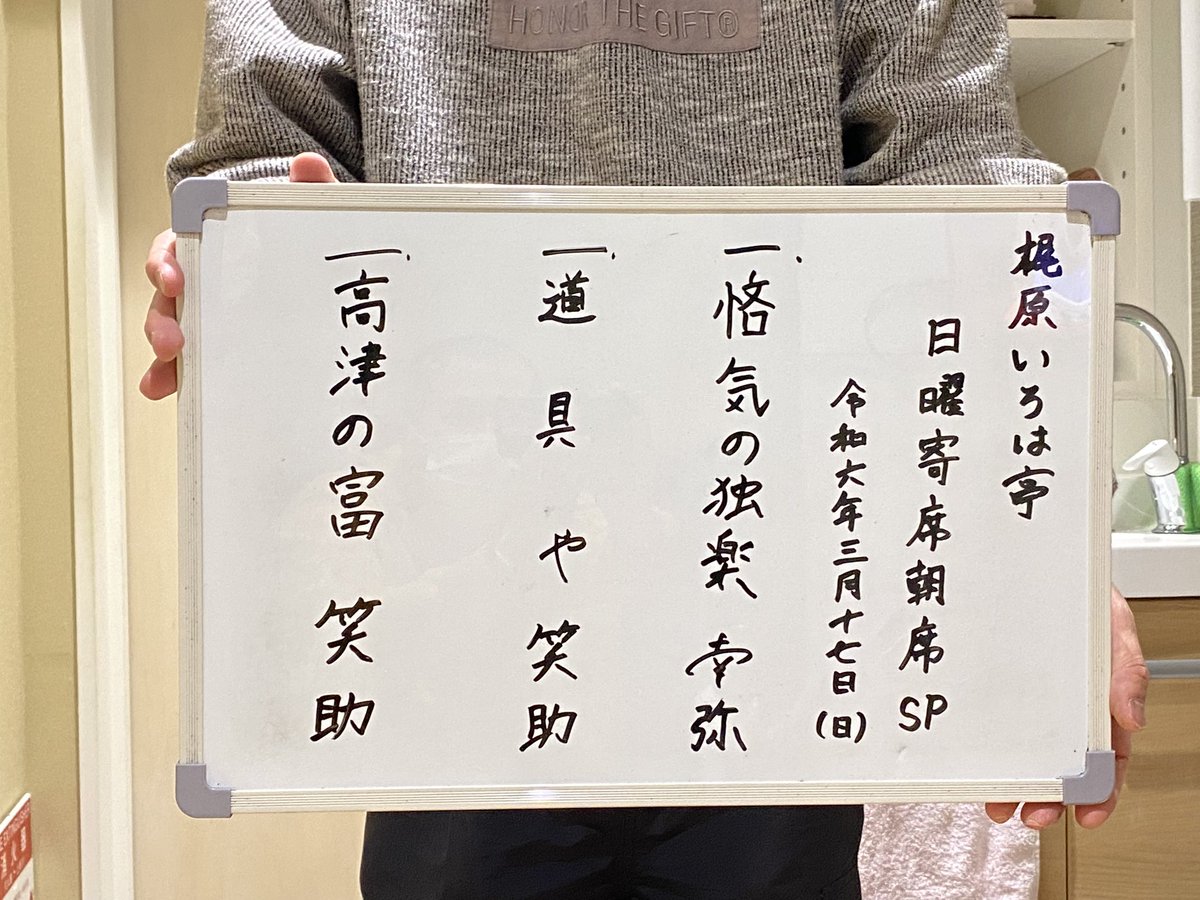 HONOR THE GIFT®
梶原いろは亭
日曜寄席朝席SP
令和六年三月十七日(日)
一、悋気の独楽 幸弥
一、道具や 笑助
一、高津の富 笑助
消火器